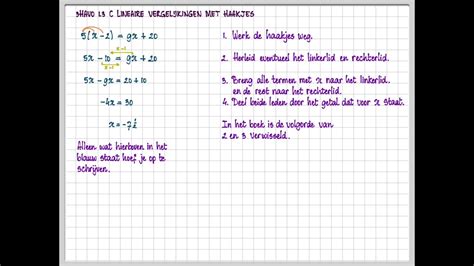 3HAVO 1.3 C LINEAIRE VERGELIJKINGEN MET HAAKJES
5(x-2) = 9x + 20
x-1
5x - 10 = 9x + 20
x-1
5x - 9x = 20 + 10
-4x = 30
x = -7½
Alleen wat hierboven in het
blauw staat hoef je op te
schrijven.
1. Werk de haakjes weg.
2. Herleid eventueel het linkerlid en rechterlid.
3. Breng alle termen met x naar het linkerlid
en de rest naar het rechterlid.
4. Deel beide leden door het getal dat voor x staat.
In het boek is de volgorde van
2 en 3 verwisseld.